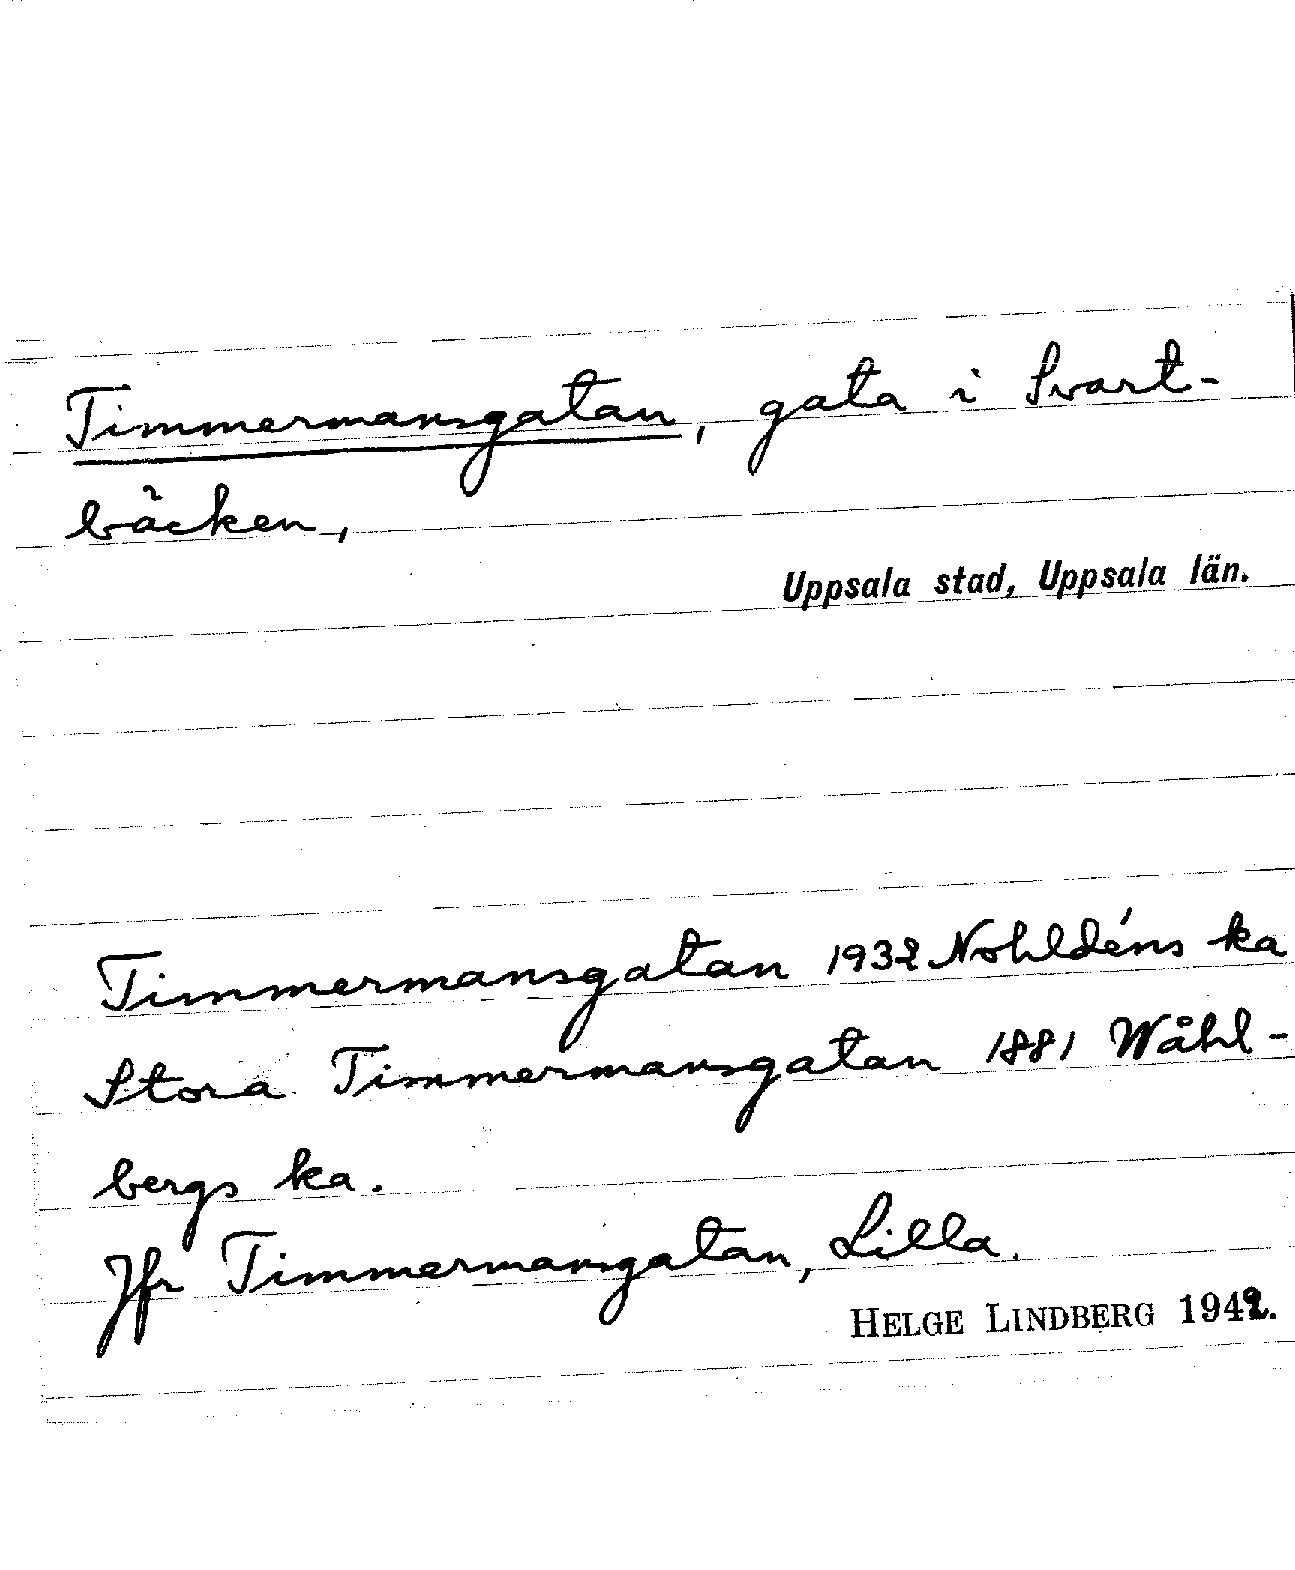 Timmermansgatan, gata i Svart-
bäcken,
Uppsala stad, Uppsala län.
Timmermansgatan 1932 Nohldéns ka
Stora Timmermansgatan 1881 Wåhl-
bergs ka.
Jfr Timmermansgatan, Lilla.
HELGE LINDBERG 1942.